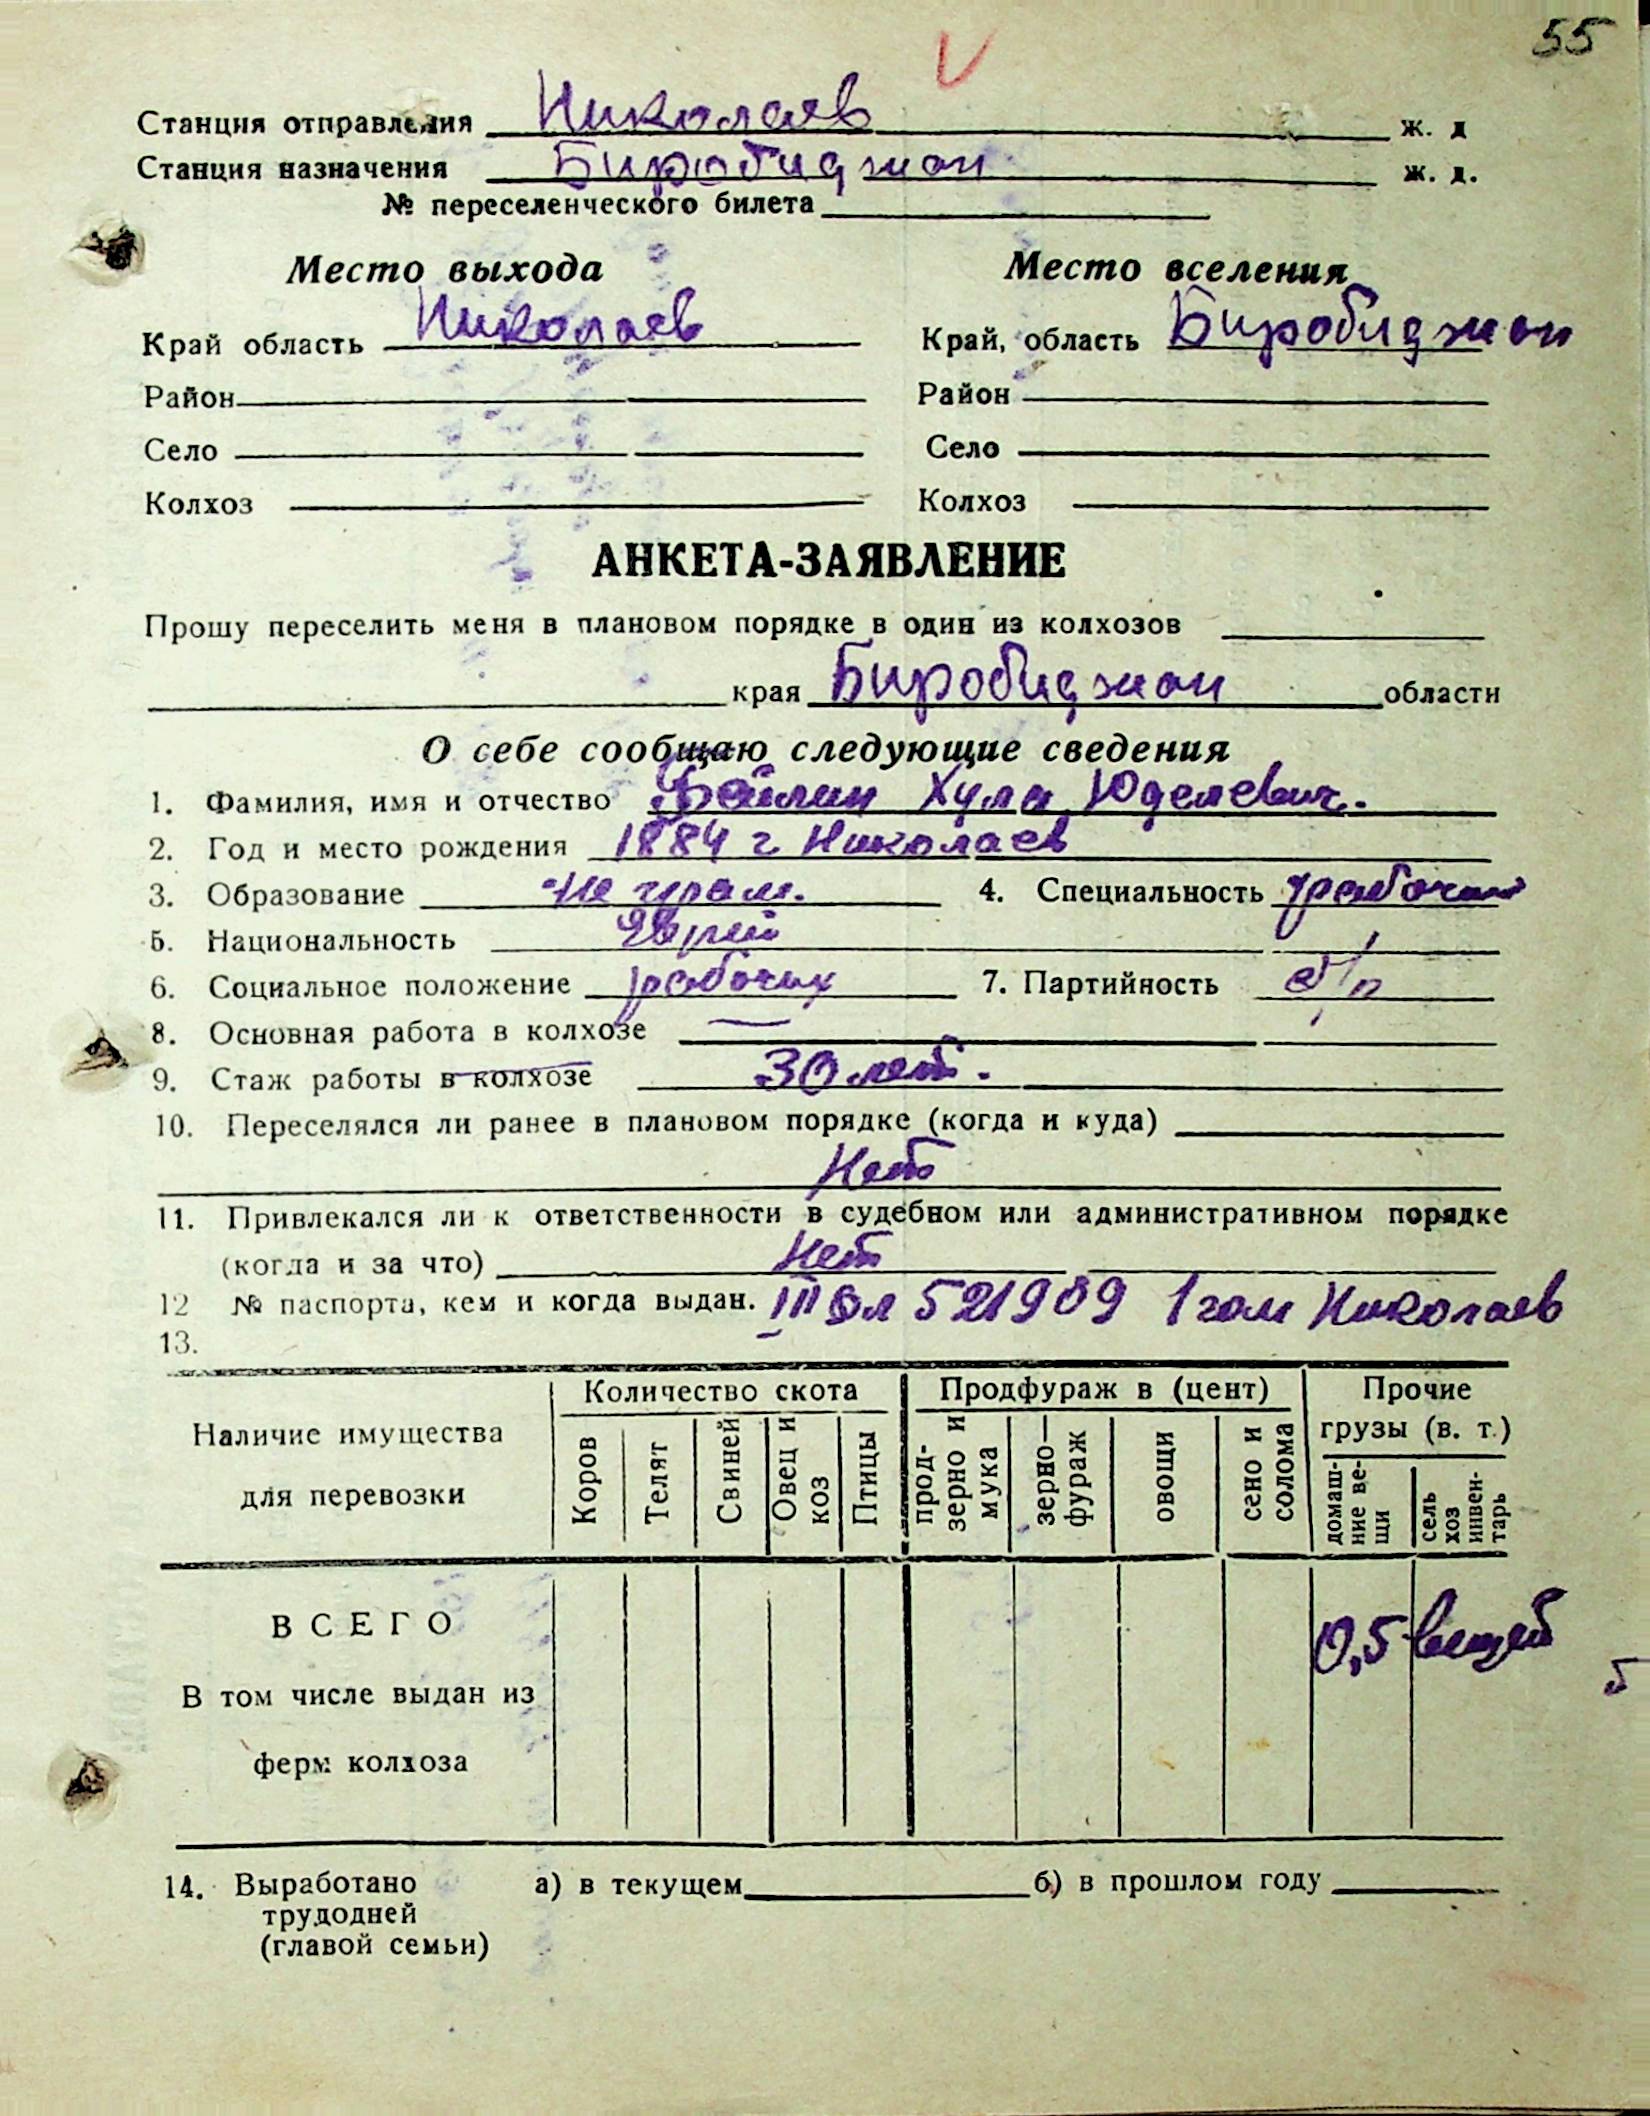 55
Станция отправления Николаев ж. д
Станция назначения Биробиджан ж. д.
№ переселенческого билета
Место выхода Место вселения
Край область Николаев Край, область Биробиджан
Район Район
Село Село
Колхоз Колхоз
АНКЕТА-ЗАЯВЛЕНИЕ
Прошу переселить меня в плановом порядке в один из колхозов
края Биробиджан области
О себе сообщаю следующие сведения
1. Фамилия, имя и отчество Хула Юделевич.
2. Год и место рождения 1884 г Николаев
3. Образование не грам. 4. Специальность рабочий
5. Национальность Еврей
6. Социальное положение рабочих 7. Партийность б/п
8. Основная работа в колхозе —
9. Стаж работы в колхозе 30 лет.
10. Переселялся ли ранее в плановом порядке (когда и куда)
Нет
11. Привлекался ли к ответственности в судебном или административном порядке
(когда и за что) Нет
12 № паспорта, кем и когда выдан. III 521909 1 гом Николаев
13.
Наличие имущества для перевозки
Количество скота
Коров Телят Свиней Овец и коз Птицы
Продфураж в (цент)
прод-зерно и мука зерно—фураж овощи сено и солома
Прочие грузы (в. т.)
домаш-ние ве-щи сель хоз инвен-тарь
ВСЕГО 0,5 вещей
В том числе выдан из
ферм колхоза
14. Выработано а) в текущем б) в прошлом году
трудодней
(главой семьи)